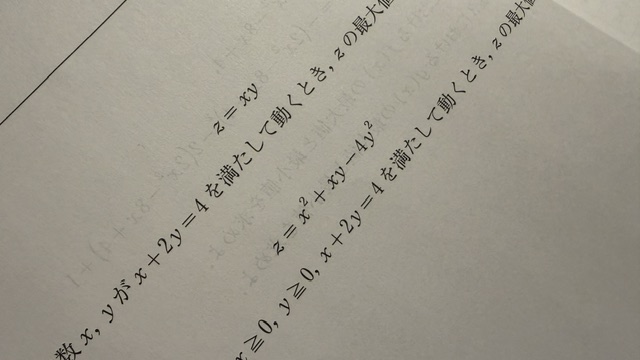 z = xy
数 x, y が x + 2y = 4 を満たして動くとき, z の最大値
z = x² + xy − 4y²
x ≧ 0, y ≧ 0, x + 2y = 4 を満たして動くとき, z の最大値